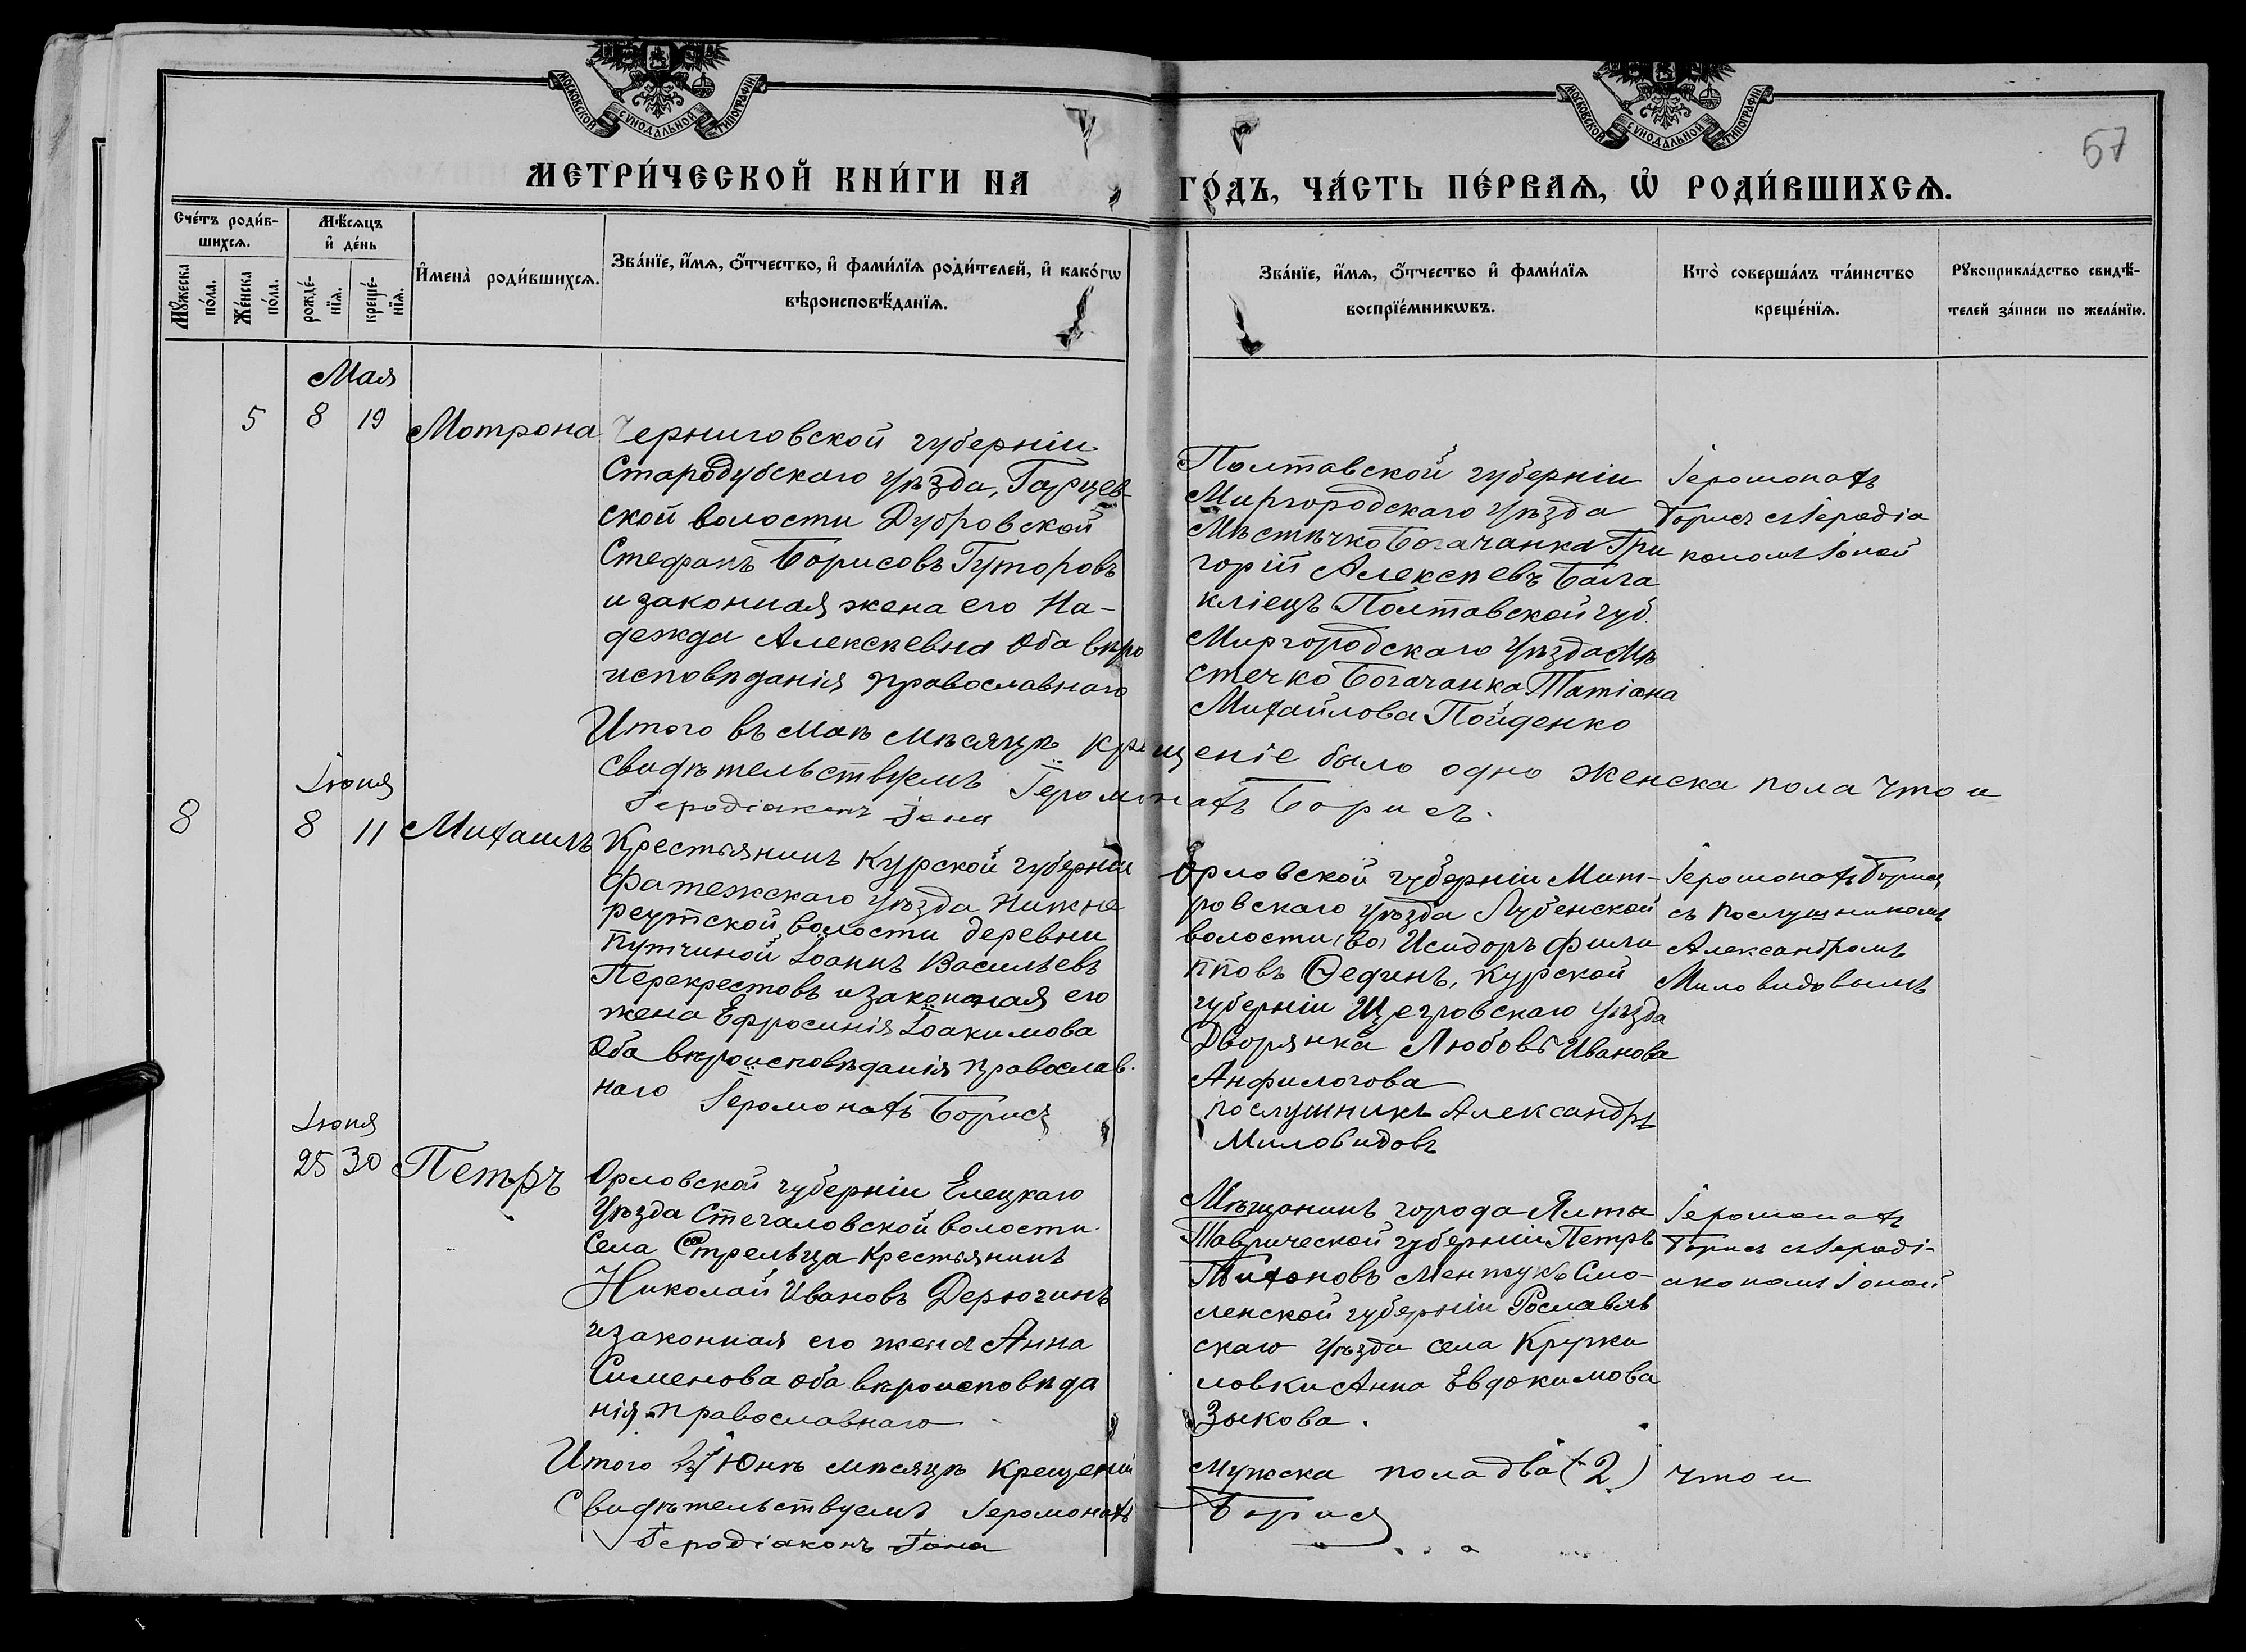 МОСКОВСКОЙ СѴНОДАЛЬНОЙ ТИПОГРАФІИ
МОСКОВСКОЙ СѴНОДАЛЬНОЙ ТИПОГРАФІИ
57
МЕТРИ́ЧЕСКОЙ КНИ́ГИ НА ГО́ДЪ, ЧА́СТЬ ПЕ́РВАѦ, Ѡ҆ РОДИ́ВШИХСѦ.
Сче́тъ роди́в-
шихсѧ.
Мꙋ́жеска
по́ла.
Же́нска
по́ла.
Мѣ́сѧцъ
и҆ де́нь
рожде́-
нїѧ.
креще́-
нїѧ.
И҆мена̀ роди́вшихсѧ.
Зва́нїе, и҆́мѧ, ѻ҆́тчество, и҆ фами́лїѧ роди́телей, и҆ како́гѡ
вѣроисповѣ́данїѧ.
Зва́нїе, и҆́мѧ, ѻ҆́тчество и҆ фами́лїѧ
воспрїе́мникѡвъ.
Кто̀ соверша́лъ та́инство
креще́нїѧ.
Рꙋкоприкла́дство свидѣ́-
телей за́писи по жела́нїю.
Мая
5 8 19 Мотрона
Черниговской губерніи
Стародубскаго уѣзда, Гарцев-
ской волости Дубровской
Стефанъ Борисовъ Гуторовъ
и законная жена его На-
дежда Алексѣевна Оба вѣро
исповѣданія православнаго
Полтавской губерніи
Миргородскаго уѣзда
Мѣстѣчко Богачанка Гри
горій Алексѣевъ Бала
кліецъ Полтавской губ.
Миргородскаго уѣзда Мѣ
стечко Богачанка Татіана
Михайлова Пойденко
Іеромонахъ
Борисъ съ Іеродіа
кономъ Іоной
Итого въ Маѣ мѣсяцѣ крещеніе было одно женска пола Что и
свидѣтельствуемъ Іеромонахъ Борисъ.
Іеродіаконъ Іона
Іюня
8 8 11 Михаилъ
Крестьянинъ Курской губерніи
Фатежскаго уѣзда Нижне
реутской волости деревни
Путчиной Іоаннъ Васильевъ
Перекрестовъ и законная его
жена Ефросинія Іоакимова
Оба вѣроисповѣданія православ.
наго Іеромонахъ Борисъ
Орловской губерніи Мит-
ровскаго уѣзда Лубенской
волости (во) Исидоръ Фили
пповъ Ѳединъ, Курской
губерніи Щегровскаго уѣзда
Дворянка Любовь Иванова
Анфилогова
послушникъ Александръ
Миловидовъ
Іеромонахъ Борисъ
съ послушникомъ
Александромъ
Миловидовымъ
Іюня
25 30 Петръ
Орловской губерніи Елецкаго
Уѣзда Стегаловской волости
Села Стрельца Крестьянинъ
Николай Ивановъ Дерюгинъ
и законная его жена Анна
Сименова оба вѣроисповѣда
нія православнаго
Мѣщанинъ города Ялты
Таврической губерніи Петръ
Тихоновъ Менжукъ Смо-
ленской губерніи Рославль
скаго уѣзда села Кружи
ловки Анна Евдокимова
Зыкова.
Іеромонахъ
Борисъ съ Іероді-
акономъ Іоной
Итого въ Юнѣ мѣсяцѣ Крещеній мужска пола два (2) Что и
Свидѣтельствуемъ Іеромонахъ Борисъ
Іеродіаконъ Іона